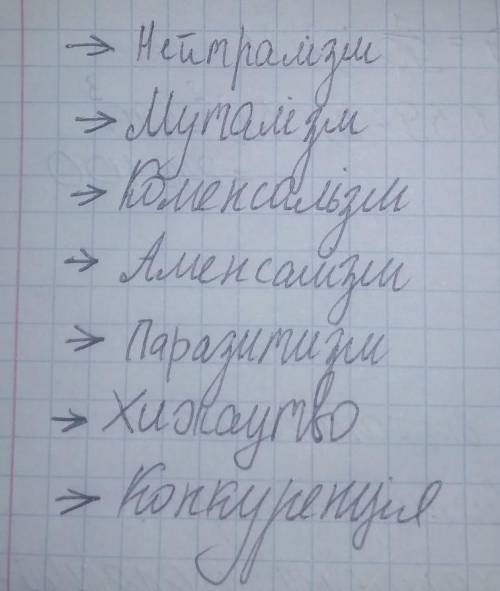 → Нейтралізм
→ Муталізм
→ Коменсалізм
→ Аменсалізм
→ Паразитизм
→ Хижацтво
→ Конкуренція